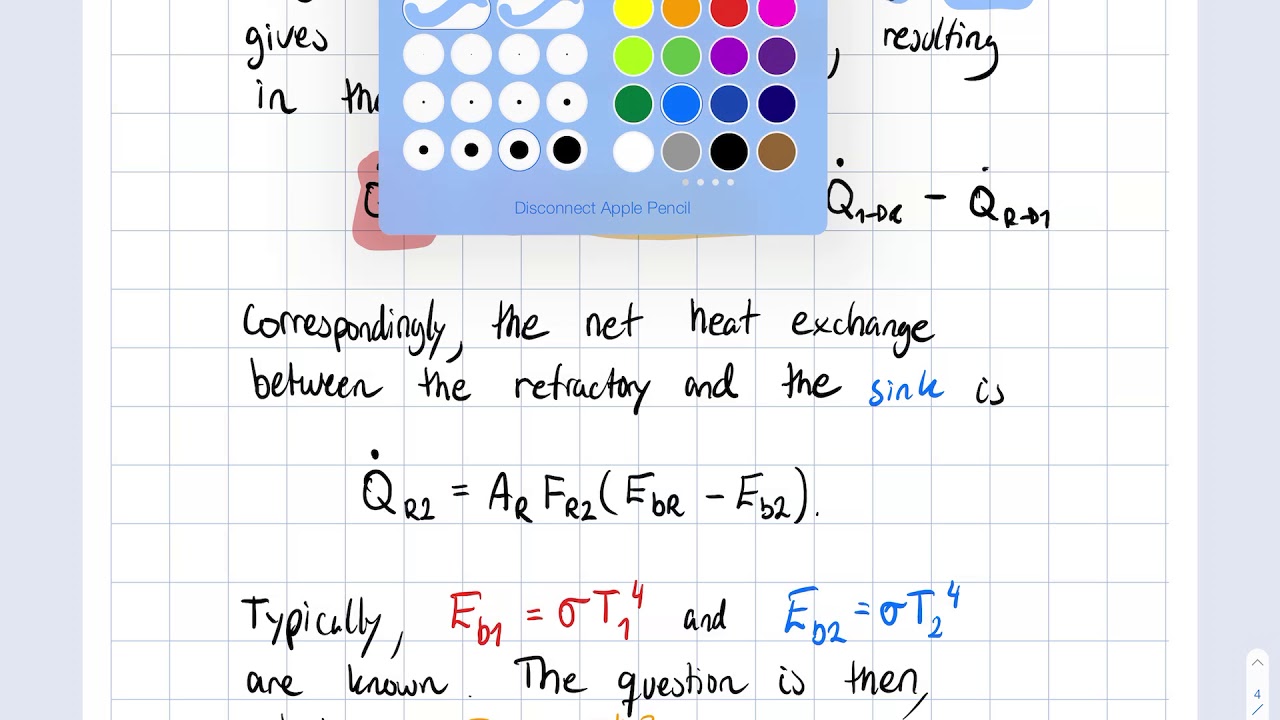 gives , resulting
in
Q̇₁→R − Q̇R→1
Disconnect Apple Pencil
Correspondingly, the net heat exchange
between the refractory and the sink is
Q̇R2 = AR FR2 (EbR − Eb2).
Typically, Eb1 = σT₁⁴ and Eb2 = σT₂⁴
are known. The question is then,
4